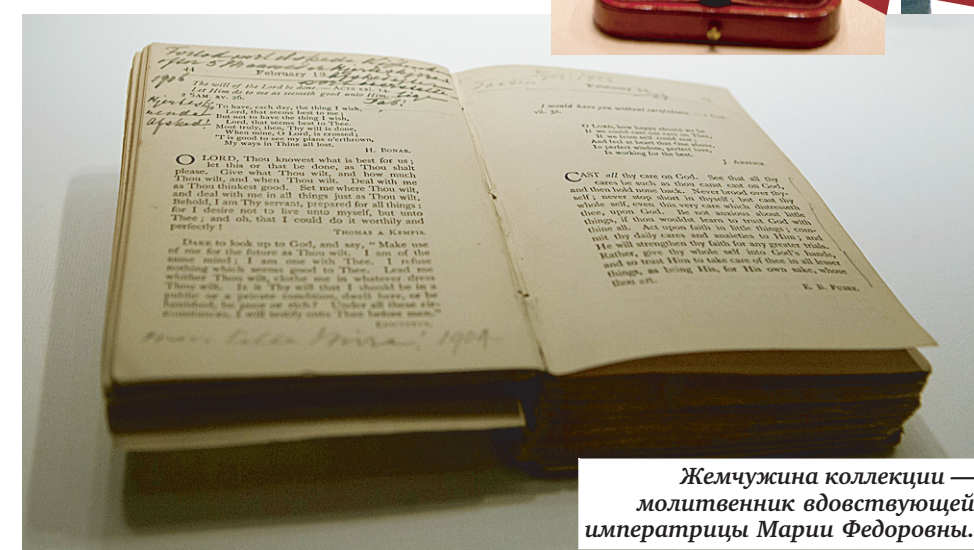 1906
44 February 13
The will of the Lord be done.—ACTS xxi. 14.
Let Him do to me as seemeth good unto Him.
2 SAM. xv. 26.
To have, each day, the thing I wish,
Lord, that seems best to me;
But not to have the thing I wish,
Lord, that seems best to Thee.
Most truly, then, Thy will is done,
When mine, O Lord, is crossed;
'T is good to see my plans o'erthrown,
My ways in Thine all lost.
H. BONAR.
O LORD, Thou knowest what is best for us;
let this or that be done, as Thou shalt
please. Give what Thou wilt, and how much
Thou wilt, and when Thou wilt. Deal with me
as Thou thinkest good. Set me where Thou wilt,
and deal with me in all things just as Thou wilt.
Behold, I am Thy servant, prepared for all things;
for I desire not to live unto myself, but unto
Thee; and oh, that I could do it worthily and
perfectly!
THOMAS À KEMPIS.
DARE to look up to God, and say, "Make use
of me for the future as Thou wilt. I am of the
same mind; I am one with Thee. I refuse
nothing which seems good to Thee. Lead me
whither Thou wilt, clothe me in whatever dress
Thou wilt. Is it Thy will that I should be in a
public or a private condition, dwell here, or be
banished, be poor or rich? Under all these cir-
cumstances, I will testify unto Thee before men."
EPICTETUS.
1904
February
I would have you without carefulness.
vii. 32.
O LORD, how happy should we be
If we could cast our care on Thee,
If we from self could rest;
And feel at heart that One above,
In perfect wisdom, perfect love,
Is working for the best.
J. ANSTICE.
CAST all thy care on God. See that all thy
cares be such as thou canst cast on God,
and then hold none back. Never brood over thy-
self; never stop short in thyself; but cast thy
whole self, even this very care which distresseth
thee, upon God. Be not anxious about little
things, if thou wouldst learn to trust God with
thine all. Act upon faith in little things; com-
mit thy daily cares and anxieties to Him; and
He will strengthen thy faith for any greater trials.
Rather, give thy whole self into God's hands,
and so trust Him to take care of thee in all lesser
things, as being His, for His own sake, whose
thou art.
E. B. PUSEY.
Жемчужина коллекции —
молитвенник вдовствующей
императрицы Марии Федоровны.